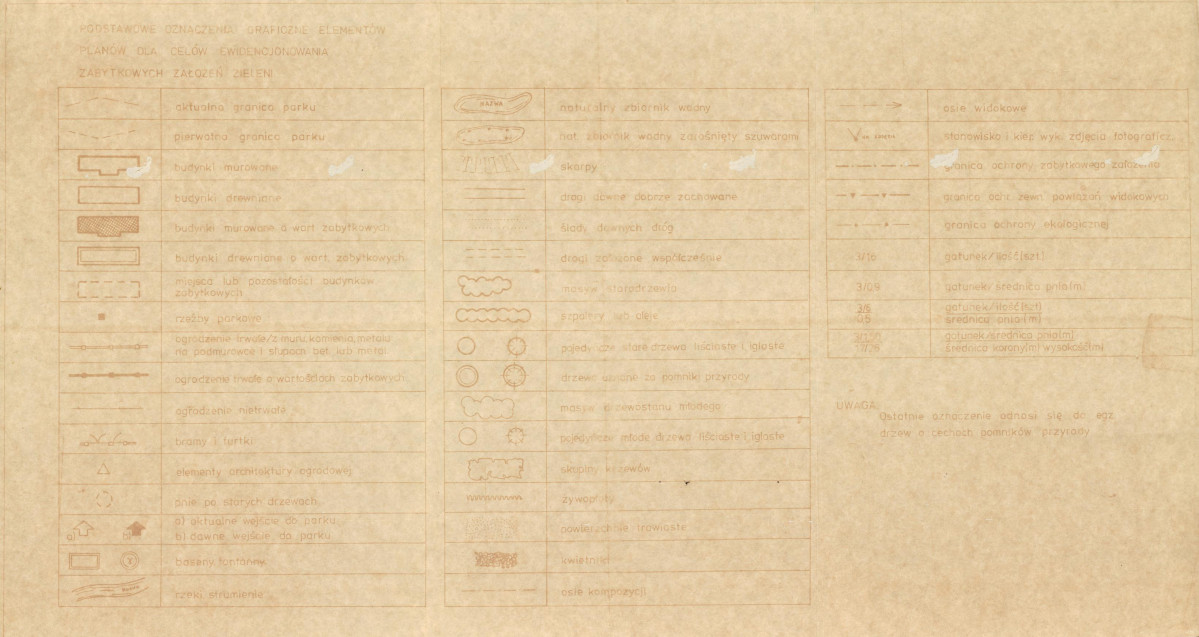 PODSTAWOWE OZNACZENIA GRAFICZNE ELEMENTÓW
PLANÓW DLA CELÓW EWIDENCJONOWANIA
ZABYTKOWYCH ZAŁOŻEŃ ZIELENI
aktualna granica parku
pierwotna granica parku
budynki murowane
budynki drewniane
budynki murowane o wart. zabytkowych
budynki drewniane o wart. zabytkowych
miejsca lub pozostałości budynków
zabytkowych
rzeźby parkowe
ogrodzenie trwałe/z muru, kamienia, metalu
na podmurówce i słupach bet. lub metal.
ogrodzenie trwałe o wartościach zabytkowych
ogrodzenie nietrwałe
bramy i furtki
elementy architektury ogrodowej
pnie po starych drzewach
a) b)
a) aktualne wejście do parku
b) dawne wejście do parku
baseny, fontanny
rzeki strumienie
NAZWA
naturalny zbiornik wodny
nat. zbiornik wodny zarośnięty szuwarami
skarpy
drogi dawne dobrze zachowane
ślady dawnych dróg
drogi założone współcześnie
masyw starodrzewia
szpalery lub aleje
pojedyńcze stare drzewa liściaste i iglaste
drzewa uznane za pomniki przyrody
masyw drzewostanu młodego
pojedyńcze młode drzewa liściaste i iglaste
skupiny krzewów
żywopłoty
powierzchnie trawiaste
kwietniki
osie kompozycji
osie widokowe
stanowisko i kier. wyk. zdjęcia fotograficz.
granica ochrony zabytkowego założenia
granica ochr. zewn. powiązań widokowych
granica ochrony ekologicznej
3/16 gatunek/ilość(szt)
3/0.9 gatunek/średnica pnia(m)
3/6 gatunek/ilość(szt)
0.5 średnica pnia(m)
gatunek/średnica pnia(m)
średnica korony(m) wysokość(m)
UWAGA:
Ostatnie oznaczenie odnosi się do egz.
drzew o cechach pomników przyrody